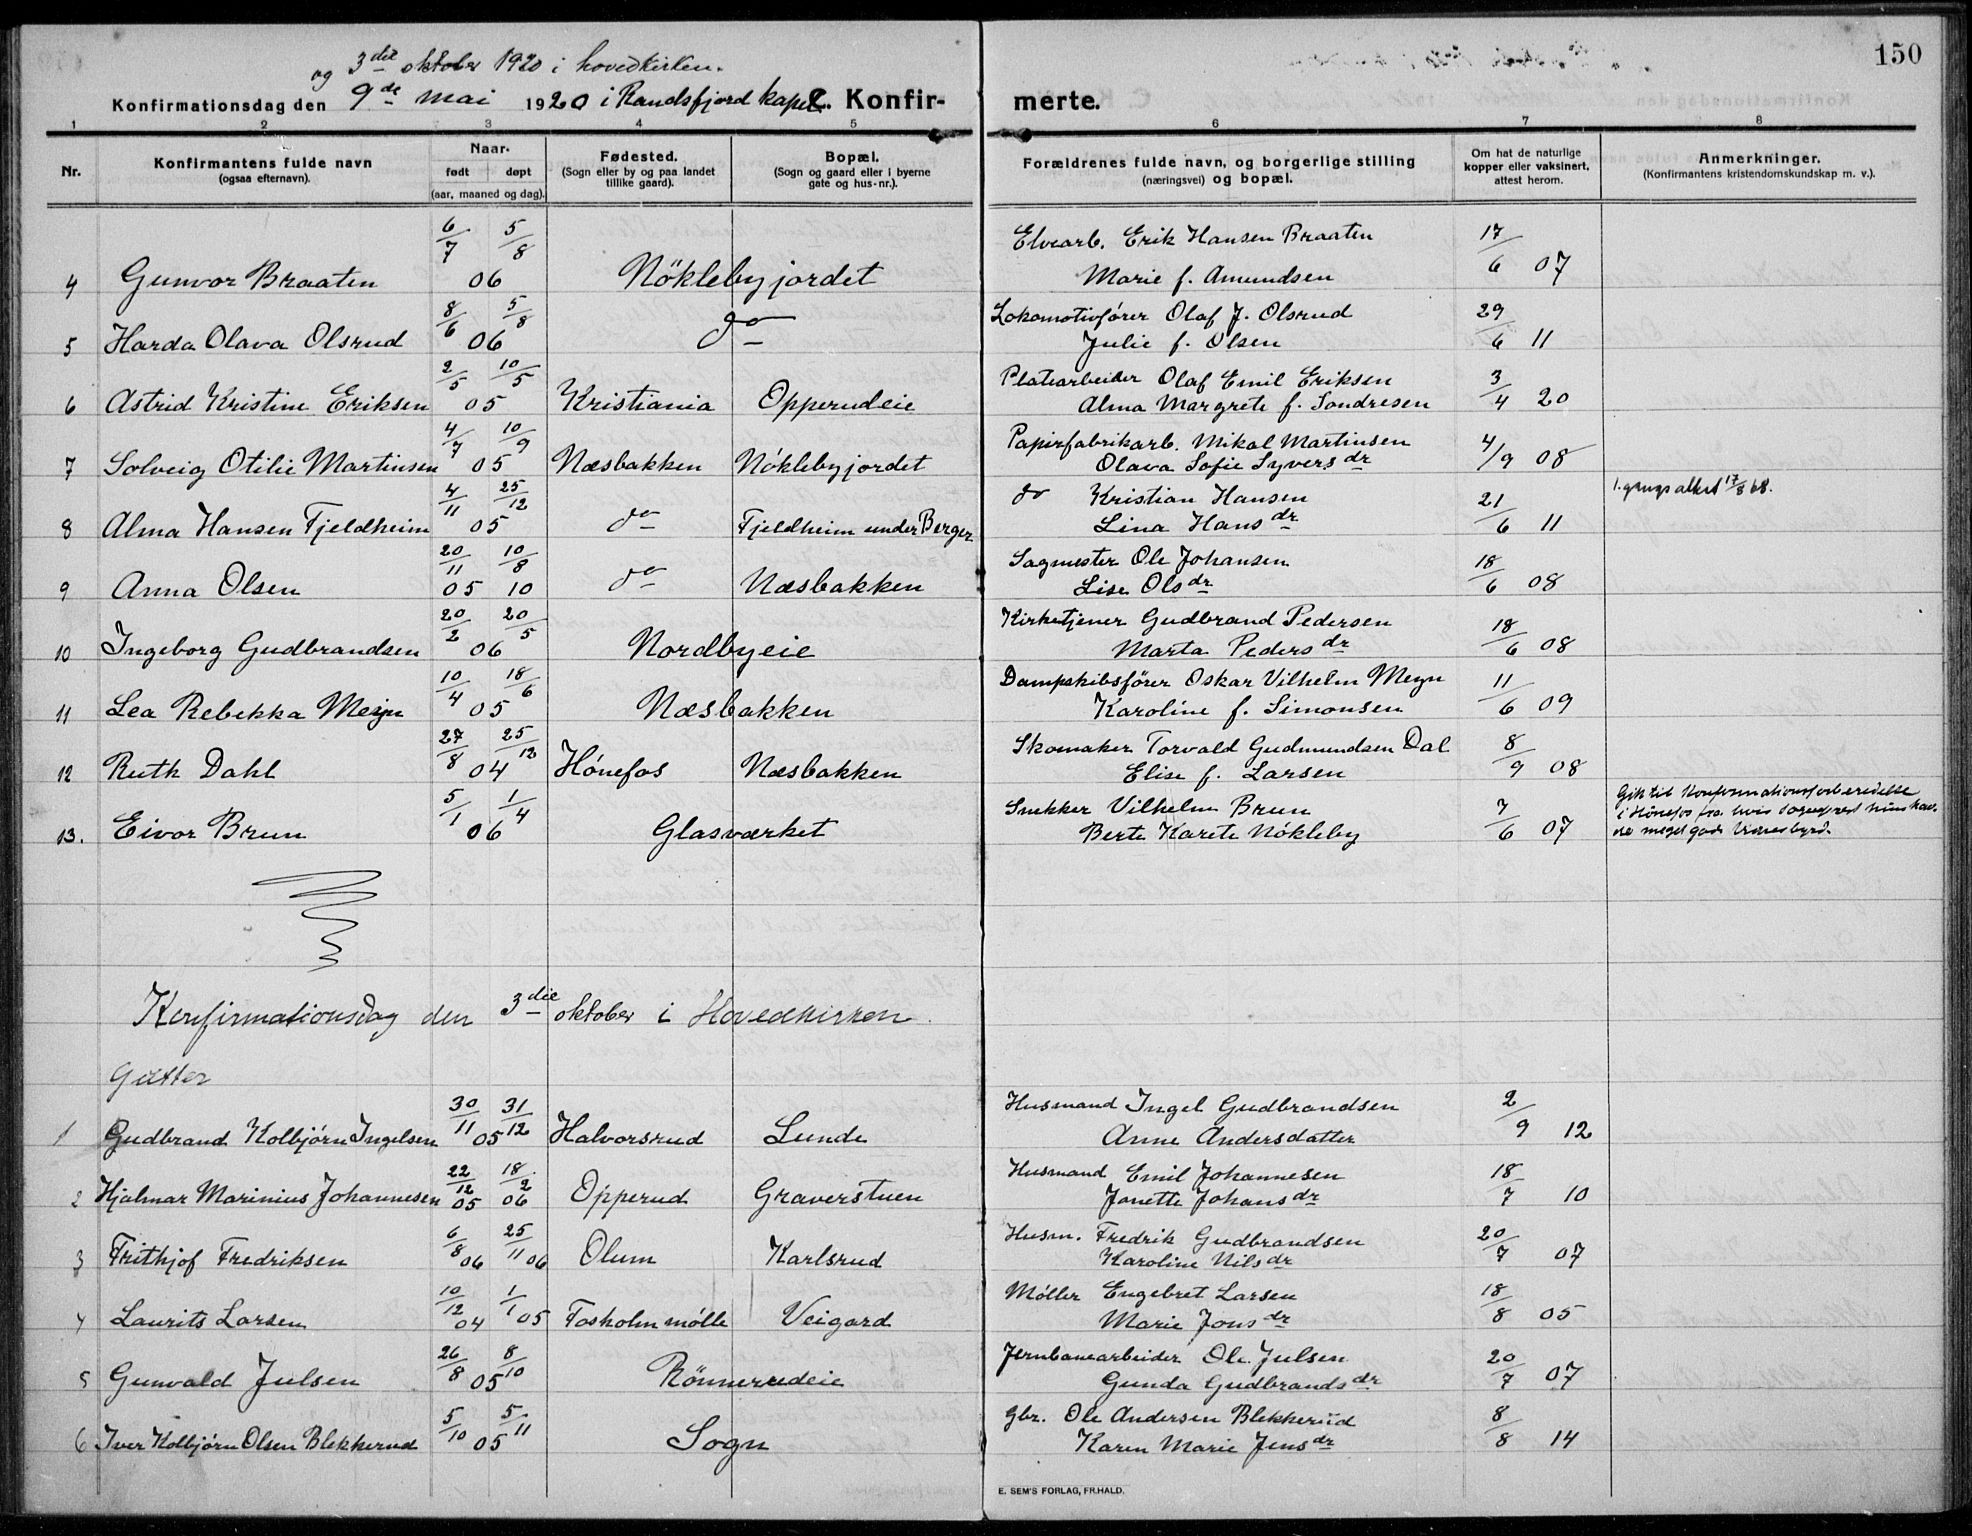 150
og 3die oktober 1920 i hovedkirken.
Konfirmationsdag den 9de mai 1920 i Randsfjord kapel C. Konfir- merte.
1 2 3 4 5 6 7 8
Nr. Konfirmantens fulde navn (ogsaa efternavn). Naar. født døpt (aar, maaned og dag). Fødested. (Sogn eller by og paa landet tillike gaard). Bopæl. (Sogn og gaard eller i byerne gate og hus-nr.). Forældrenes fulde navn, og borgerlige stilling (næringsvei) og bopæl. Om hat de naturlige kopper eller vaksinert, attest herom. Anmerkninger. (Konfirmantens kristendomskundskap m. v.).
6/7 5/8 Elvearb. Erik Hansen Braaten 17/6 07
4 Gunvor Braaten 06 Nöklebyjordet Marie f. Amundsen
8/6 5/8 Lokomotivfører Olaf J. Olsrud 29/6 11
5 Harda Olava Olsrud 06 do Julie f. Olsen
2/5 10/5 Platearbeider Olaf Emil Eriksen 3/4 20
6 Astrid Kristine Eriksen 05 Kristiania Opperudeie Alma Margrete f. Sondresen
4/7 10/9 Papirfabrikarb. Mikal Martinsen 4/9 08
7 Solveig Otilie Martinsen 05 Næsbakken Nöklebyjordet Olava Sofie Syversdr
4/11 25/12 do Kristian Hansen 21/6 11 1. gangs attest 17/8 68.
8 Alma Hansen Fjeldheim 05 do Fjeldheim under Berger Lina Hansdr
20/11 10/8 Sagmester Ole Johansen 18/6 08
9 Anna Olsen 05 10 do Næsbakken Lise Olsdr
20/2 20/5 Kirketjener Gudbrand Pedersen 18/6 08
10 Ingeborg Gudbrandsen 06 Nordbyeie Marta Pedersdr
10/4 18/6 Dampskibsfører Oskar Vilhelm Meyn 11/6 09
11 Lea Rebekka Meyn 05 Næsbakken Karoline f. Simonsen
27/8 25/12 Skomaker Torvald Gudmundsen Dal 8/9 08
12 Ruth Dahl 04 Hónefos Næsbakken Elise f. Larsen
5/1 1/4 Snekker Vilhelm Brun 7/6 07 Gik til Konfirmationsforberedelse
13. Eivor Brun 06 Glasværket Berte Karete Nökleby i Hónefos fra hvis sogneprest hun hav-
de meget godt vidnesbyrd.
Konfirmationsdag den 3die oktober i Hovedkirken.
Gutter
30/11 31/12 Husmand Ingel Gudbrandsen 2/9 12
1 Gudbrand Kolbjørn Ingelsen 05 Halvorsrud Lunde Anne Andersdatter
22/12 18/2 Husmand Emil Johannesen 18/7 10
2 Hjalmar Marinius Johannesen 05 06 Opperud Graverstuen Jonette Johansdr
6/8 25/11 Husm. Fredrik Gudbrandsen 20/7 07
3 Frithjof Fredriksen 06 06 Olum Karlsrud Karoline Nilsdr
10/12 1/1 Møller Engebret Larsen 18/8 05
4 Laurits Larsen 04 05 Fosholm mølle Veigard Marie Jonsdr
26/8 8/10 Jernbanearbeider Ole Julsen 20/7 07
5 Gunvald Julsen 05 Rönnerudeie Gunda Gudbrandsdr
5/10 5/11 Gbr. Ole Andersen Blekkerud 8/8 14
6 Iver Kolbjørn Olsen Blekkerud 05 Sogn Karen Marie Jensdr
E. SEM'S FORLAG, FR.HALD.